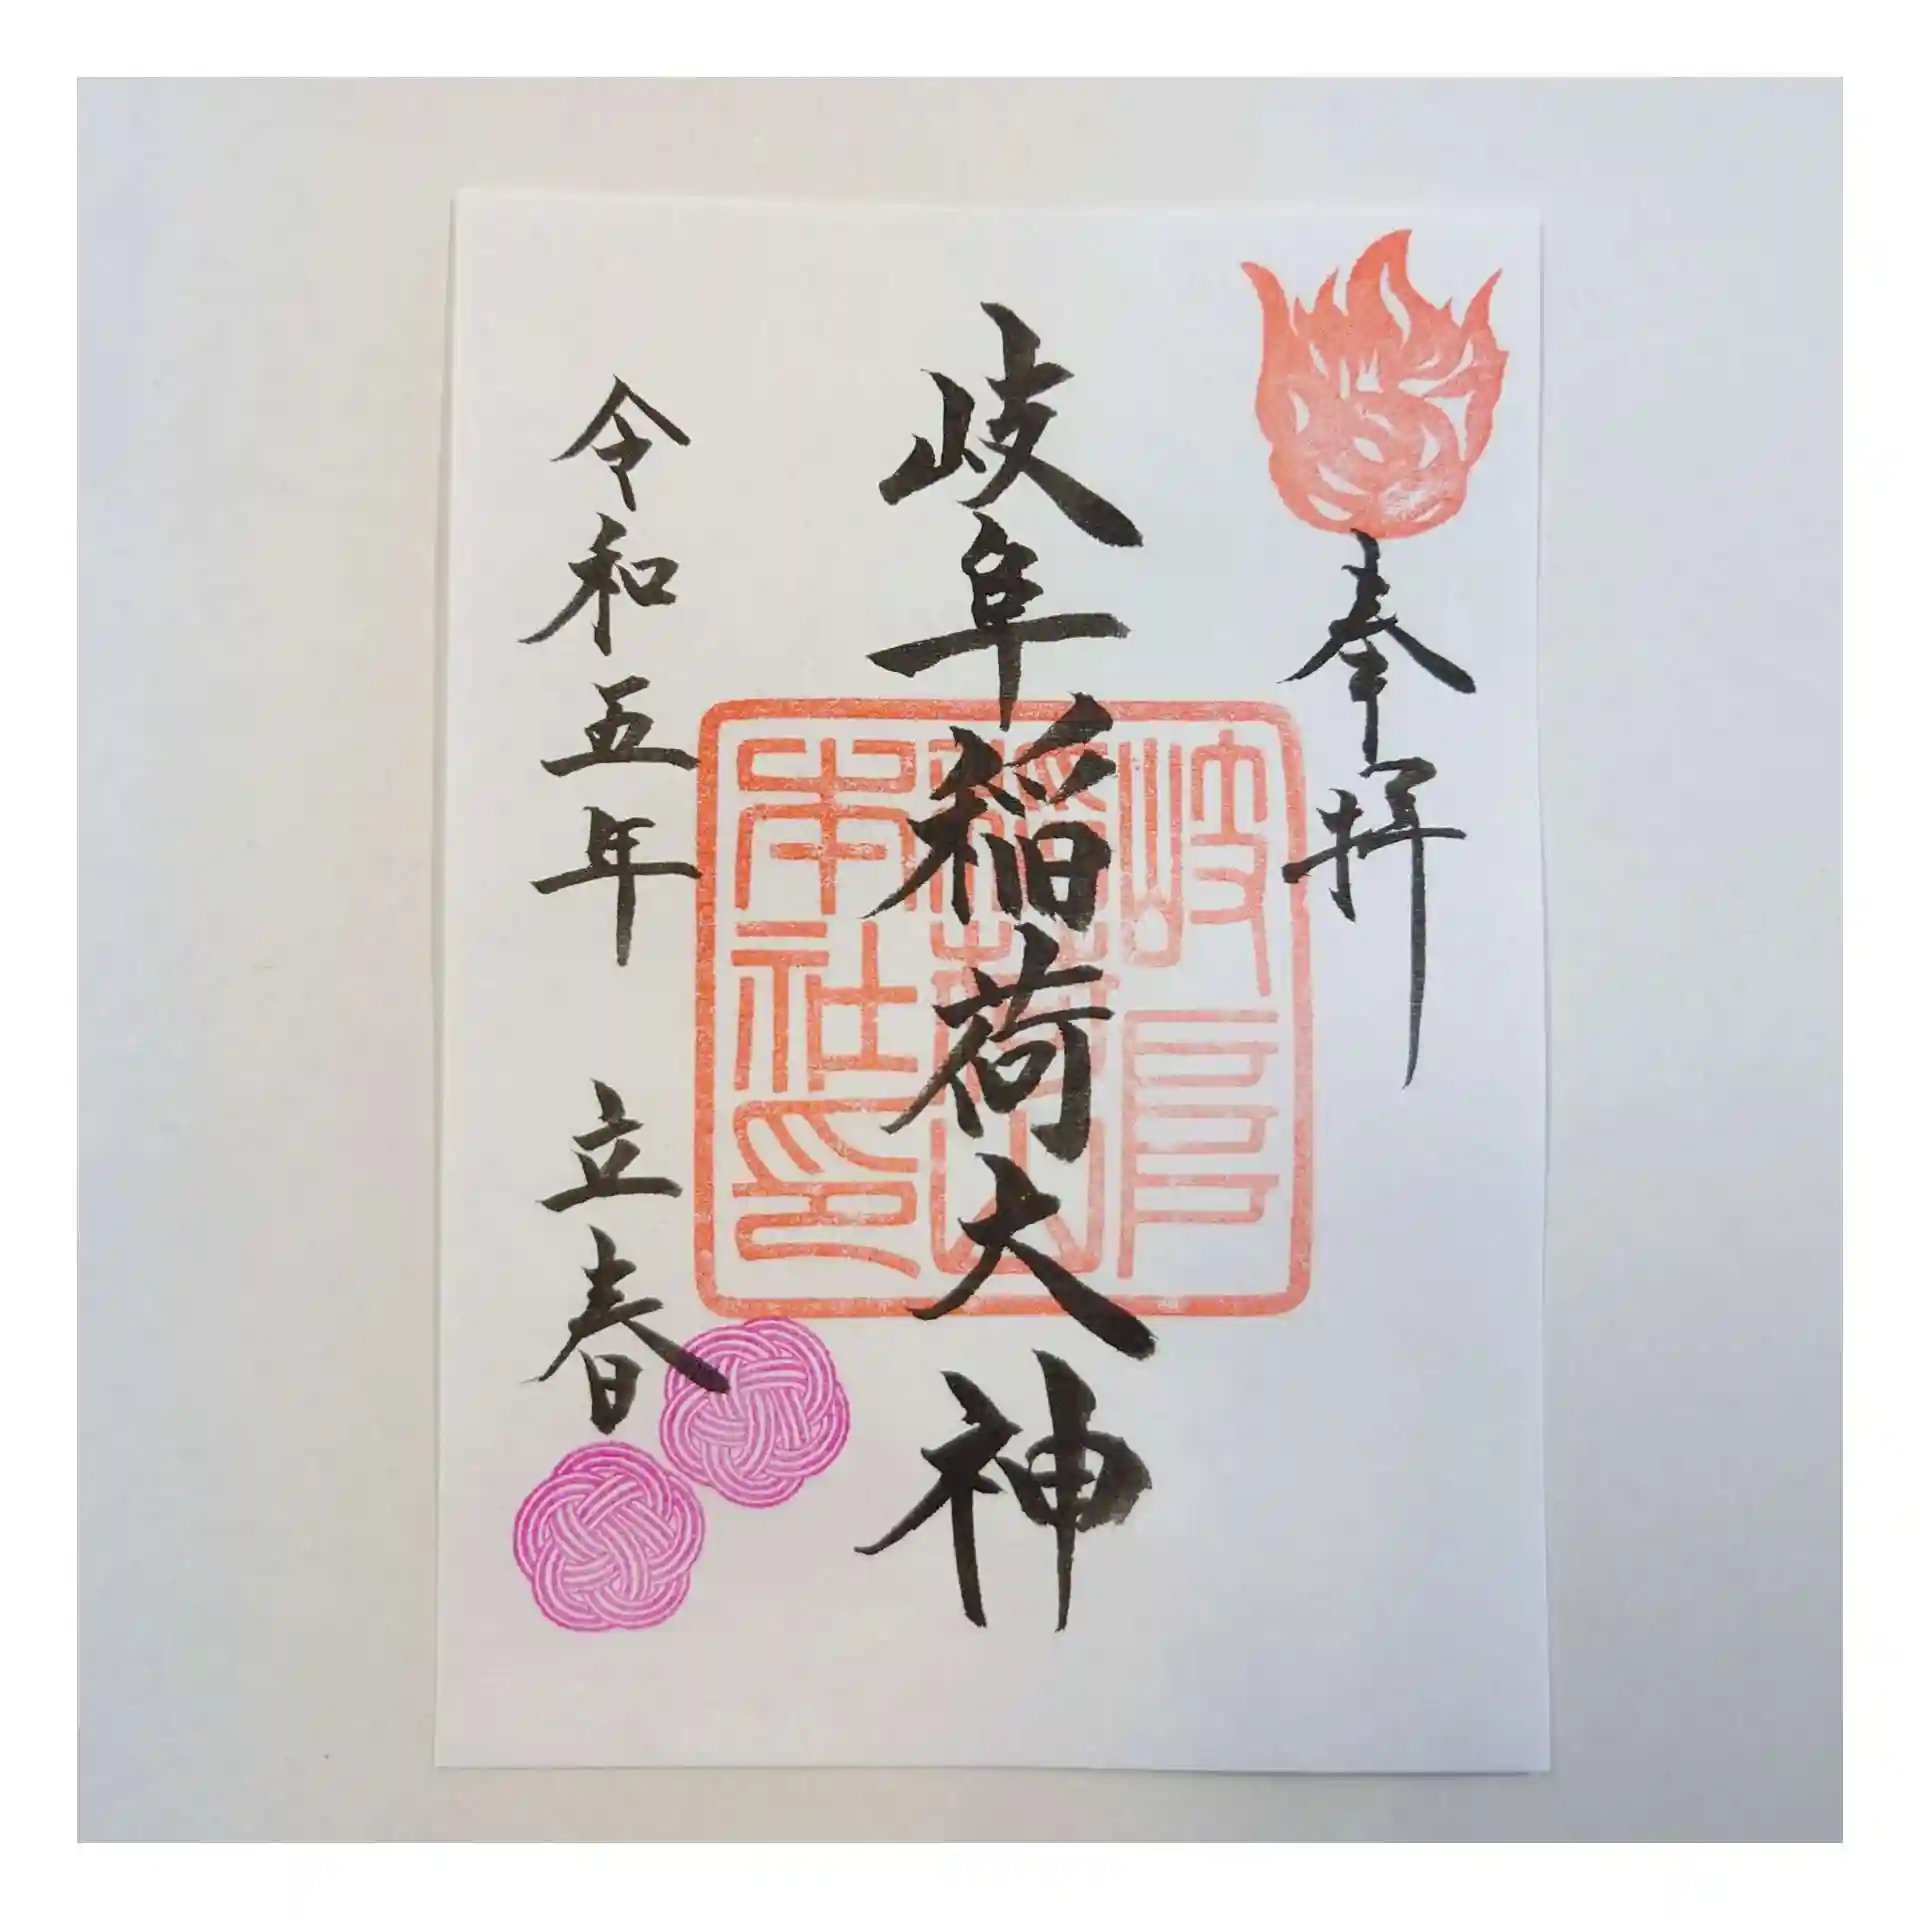 奉拝
岐阜稲荷大神
岐阜
稲荷山
本社印
令和五年 立春